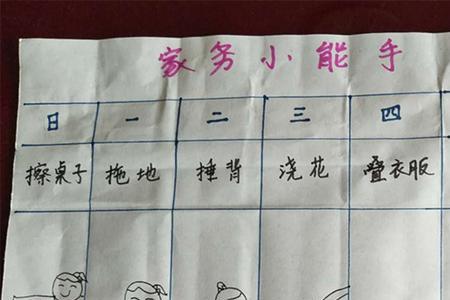 家务小能手
日 一 二 三 四
擦桌子 拖地 捶背 浇花 叠衣服